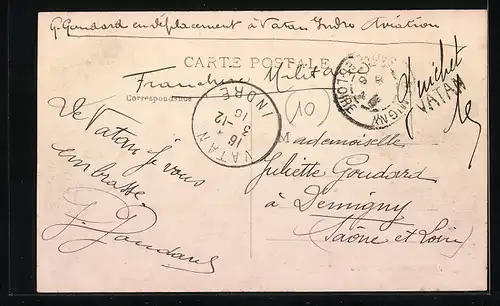 G. Goudard en déplacement à Vatan Indre Aviation
CARTE POSTALE
Franchise Militaire
Correspondance
VATAN
INDRE
16 *
3
16-12
01
guichet
VATAN
De Vatan je vous
embrasse
G. Goudard
Mademoiselle
Juliette Goudard
à Demigny
(Saône et Loire)